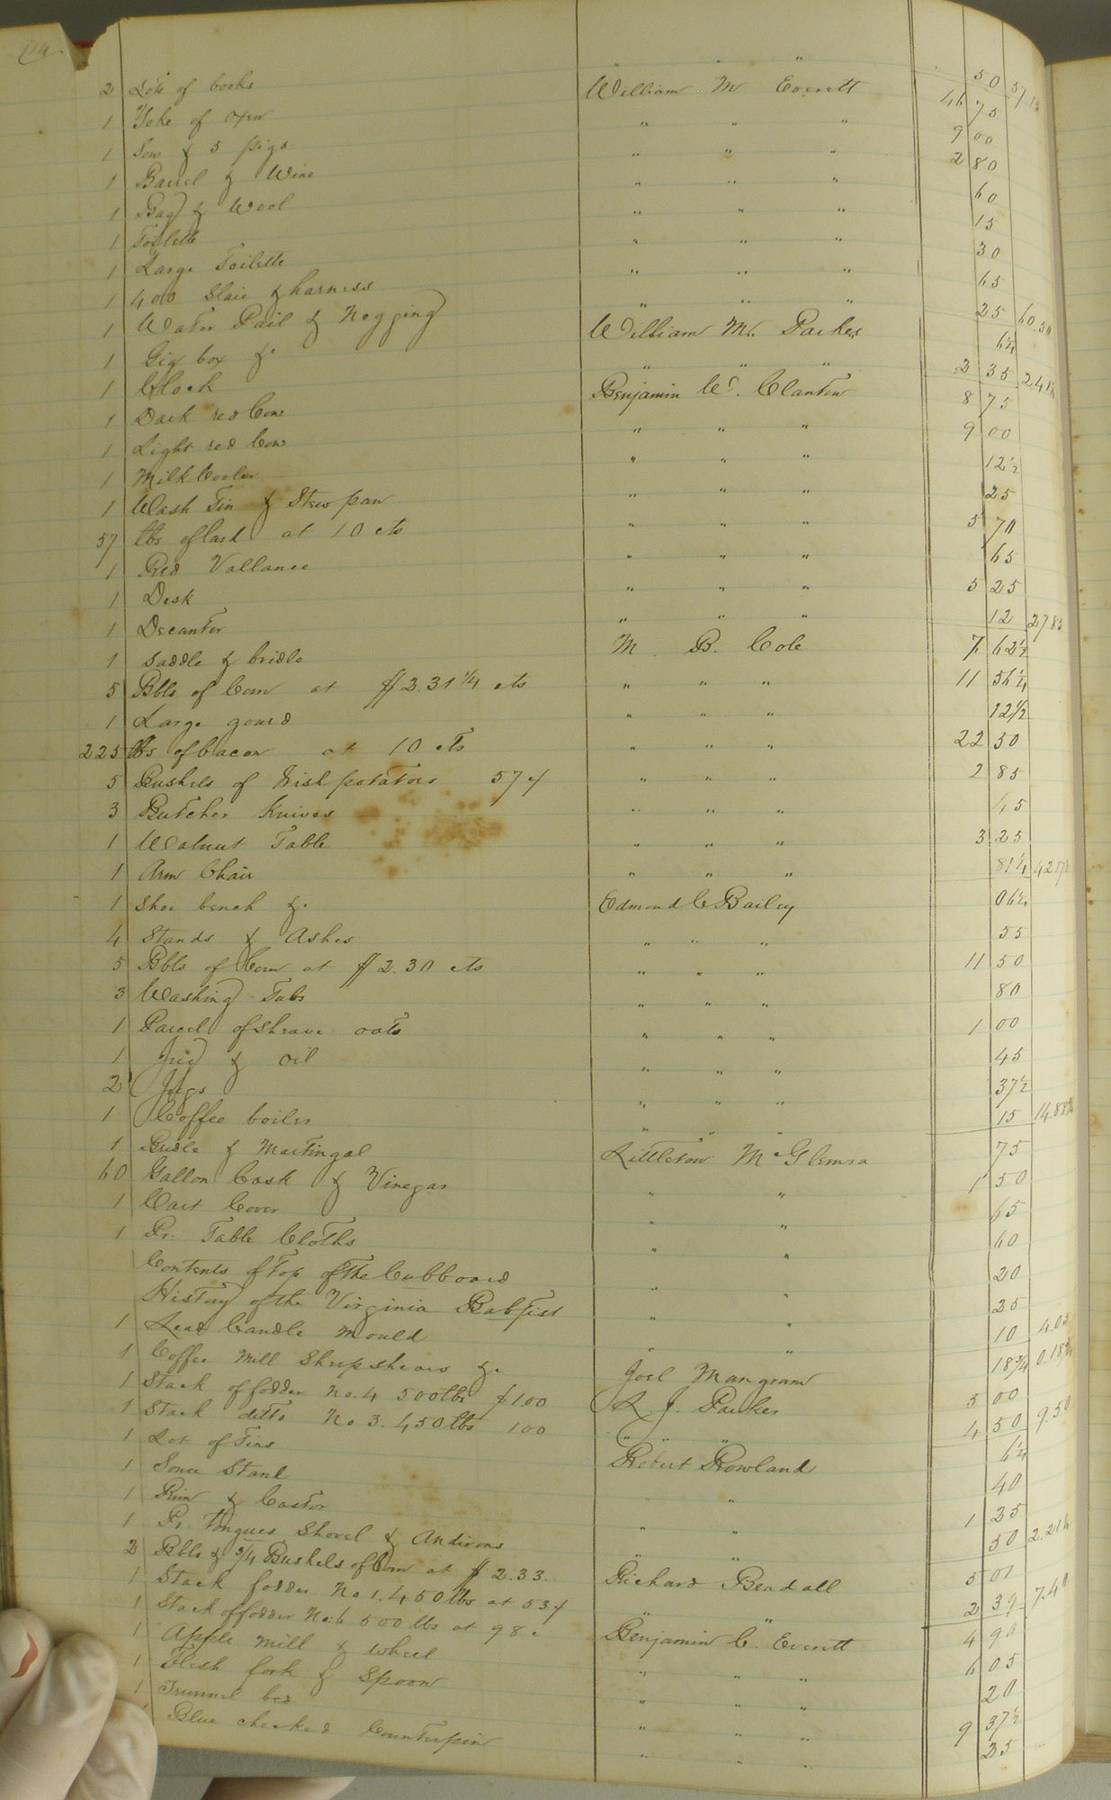 " " "
2 Lots of books William M Everitt 50 57.13
1 Yoke of oxen " " " 46 75
1 Sow & 5 pigs " " " 9 00
1 Barrel of Wine " " " 2 80
1 Bag of Wool " " " 60
1 Toilette " " " 15
1 Large Toilette " " " 30
1 400 Slaie & harness " " " 65
1 Water Pail & Nogging " " " 25 60.50
1 Gig box &c William M. Parker 6¼
1 Clock " " " 2 35 2,41¼
1 Dark red Cow Benjamin W. Clanton 8 75
1 Light red Cow " " " 9 00
1 Milk Cooler " " " 12½
1 Wash Tin & Stew pan " " " 25
57 lbs of lard at 10 cts " " " 5 70
1 Red Vallance " " " 65
1 Desk " " " 5 25
1 Decanter " " " 12 27 85
1 Saddle & bridle M. B. Cole 7 62½
5 Bbls of Corn at $2.31¼ cts " " " 11 56¼
1 Large gourd " " " 12½
225 lbs of bacon at 10 cts " " " 22 50
5 Bushels of Irish potatoes 57 ¢ " " " 2 85
3 Butcher Knives " " " 45
1 Walnut Table " " " 3 25
1 Arm Chair " " " 81¼
1 Shoe bench &c Edmond C Bailey 06¼
4 Stands & Ashes " " " 55
5 Bbls of Corn at $2.30 cts " " " 11 50
3 Washing Tubs " " " 80
1 Parcel of sheave oats " " " 1 00
1 Jug & Oil " " " 45
2 Jugs " " " 37½
1 Coffee boiler " " " 15 14.88¾
1 Bridle & Martingal Littleton 75
60 Gallon Cask & Vinegar " " 1 50
1 Cart Cover " " 65
1 Pr. Table Cloths " " 60
Contents of Top of The Cubboard " " 20
History of the Virginia Babtist " " 25
1 Lead Candle Mould " " 10 4.05
1 Coffee Mill Sheepshears &c Joel Mangram 18¾ 0.18¾
1 Stack of fodder No. 4 500 lbs $1.00 R. J. Parker 5 00
1 Stack ditto No 3. 450 lbs 100 " " " 4 50 9.50
1 Lot of Tins Robert Rowland 6¼
1 Souce Stand " 40
1 Rim & Castor " " 1 25
1 Pr. Tongues Shovel & Andirons " " 50 2.21¼
2 Bbls & ¾ Bushels of Corn at $2.33. Richard Bendall 5 01
1 Stack fodder No 1. 450 lbs at 53 ¢ " " 2 39 7.40
1 Stack of fodder No. 6 500 lbs at 98 . Benjamin C. Everitt 4 90
1 Apple Mill & Wheel " " " 6 05
1 Flesh fork & Spoon " " " 20
1 Trunnel bed " " " 9 37½
1 Blue checked Counterpin " " " 25